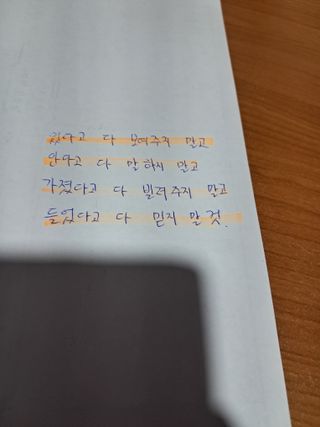 있다고 다 보여주지 말고
안다고 다 말하지 말고
가졌다고 다 빌려주지 말고
들었다고 다 믿지 말 것.